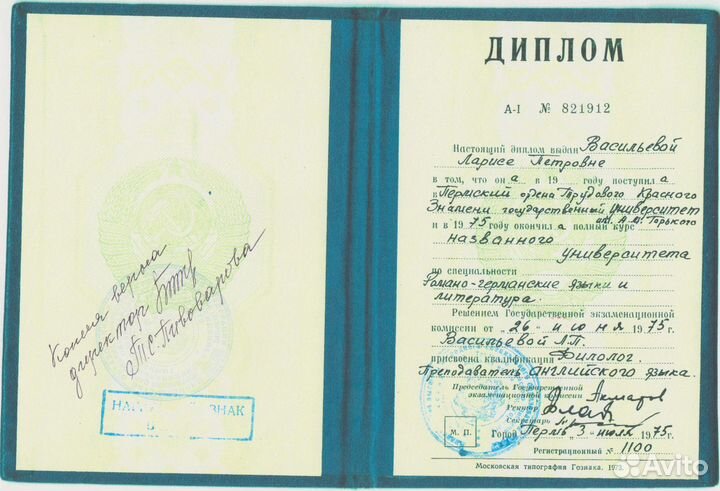 Копия верна
директор
Т.С. Пивоварова
НА ЗНАК
ДИПЛОМ
А-I № 821912
Настоящий диплом выдан Васильевой
Ларисе Петровне
в том, что он а в 19 году поступил а
в Пермский ордена Трудового Красного
Знамени государственный университет
им. А.М. Горького
и в 1975 году окончил а полный курс
названного
университета
по специальности
Романо-германские языки и
литература.
Решением Государственной экзаменационной
комиссии от „26“ июня 1975 г.
Васильевой Л.П.
присвоена квалификация Филолог.
Преподаватель английского языка.
Председатель Государственной
экзаменационной комиссии
Ректор
Секретарь
М. П. Город Пермь „3“ июля 1975 г.
Регистрационный № 1100
Московская типография Гознака. 1973.
Avito